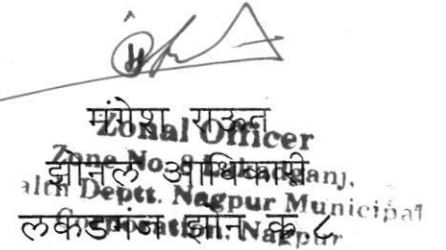 मंगेश राऊत
Zonal Officer
झोनल अधिकारी
Zone No. 8 Lakadganj,
alth Deptt. Nagpur Municipal
लकडगंज झोन क्र. ८
Corporation, Nagpur